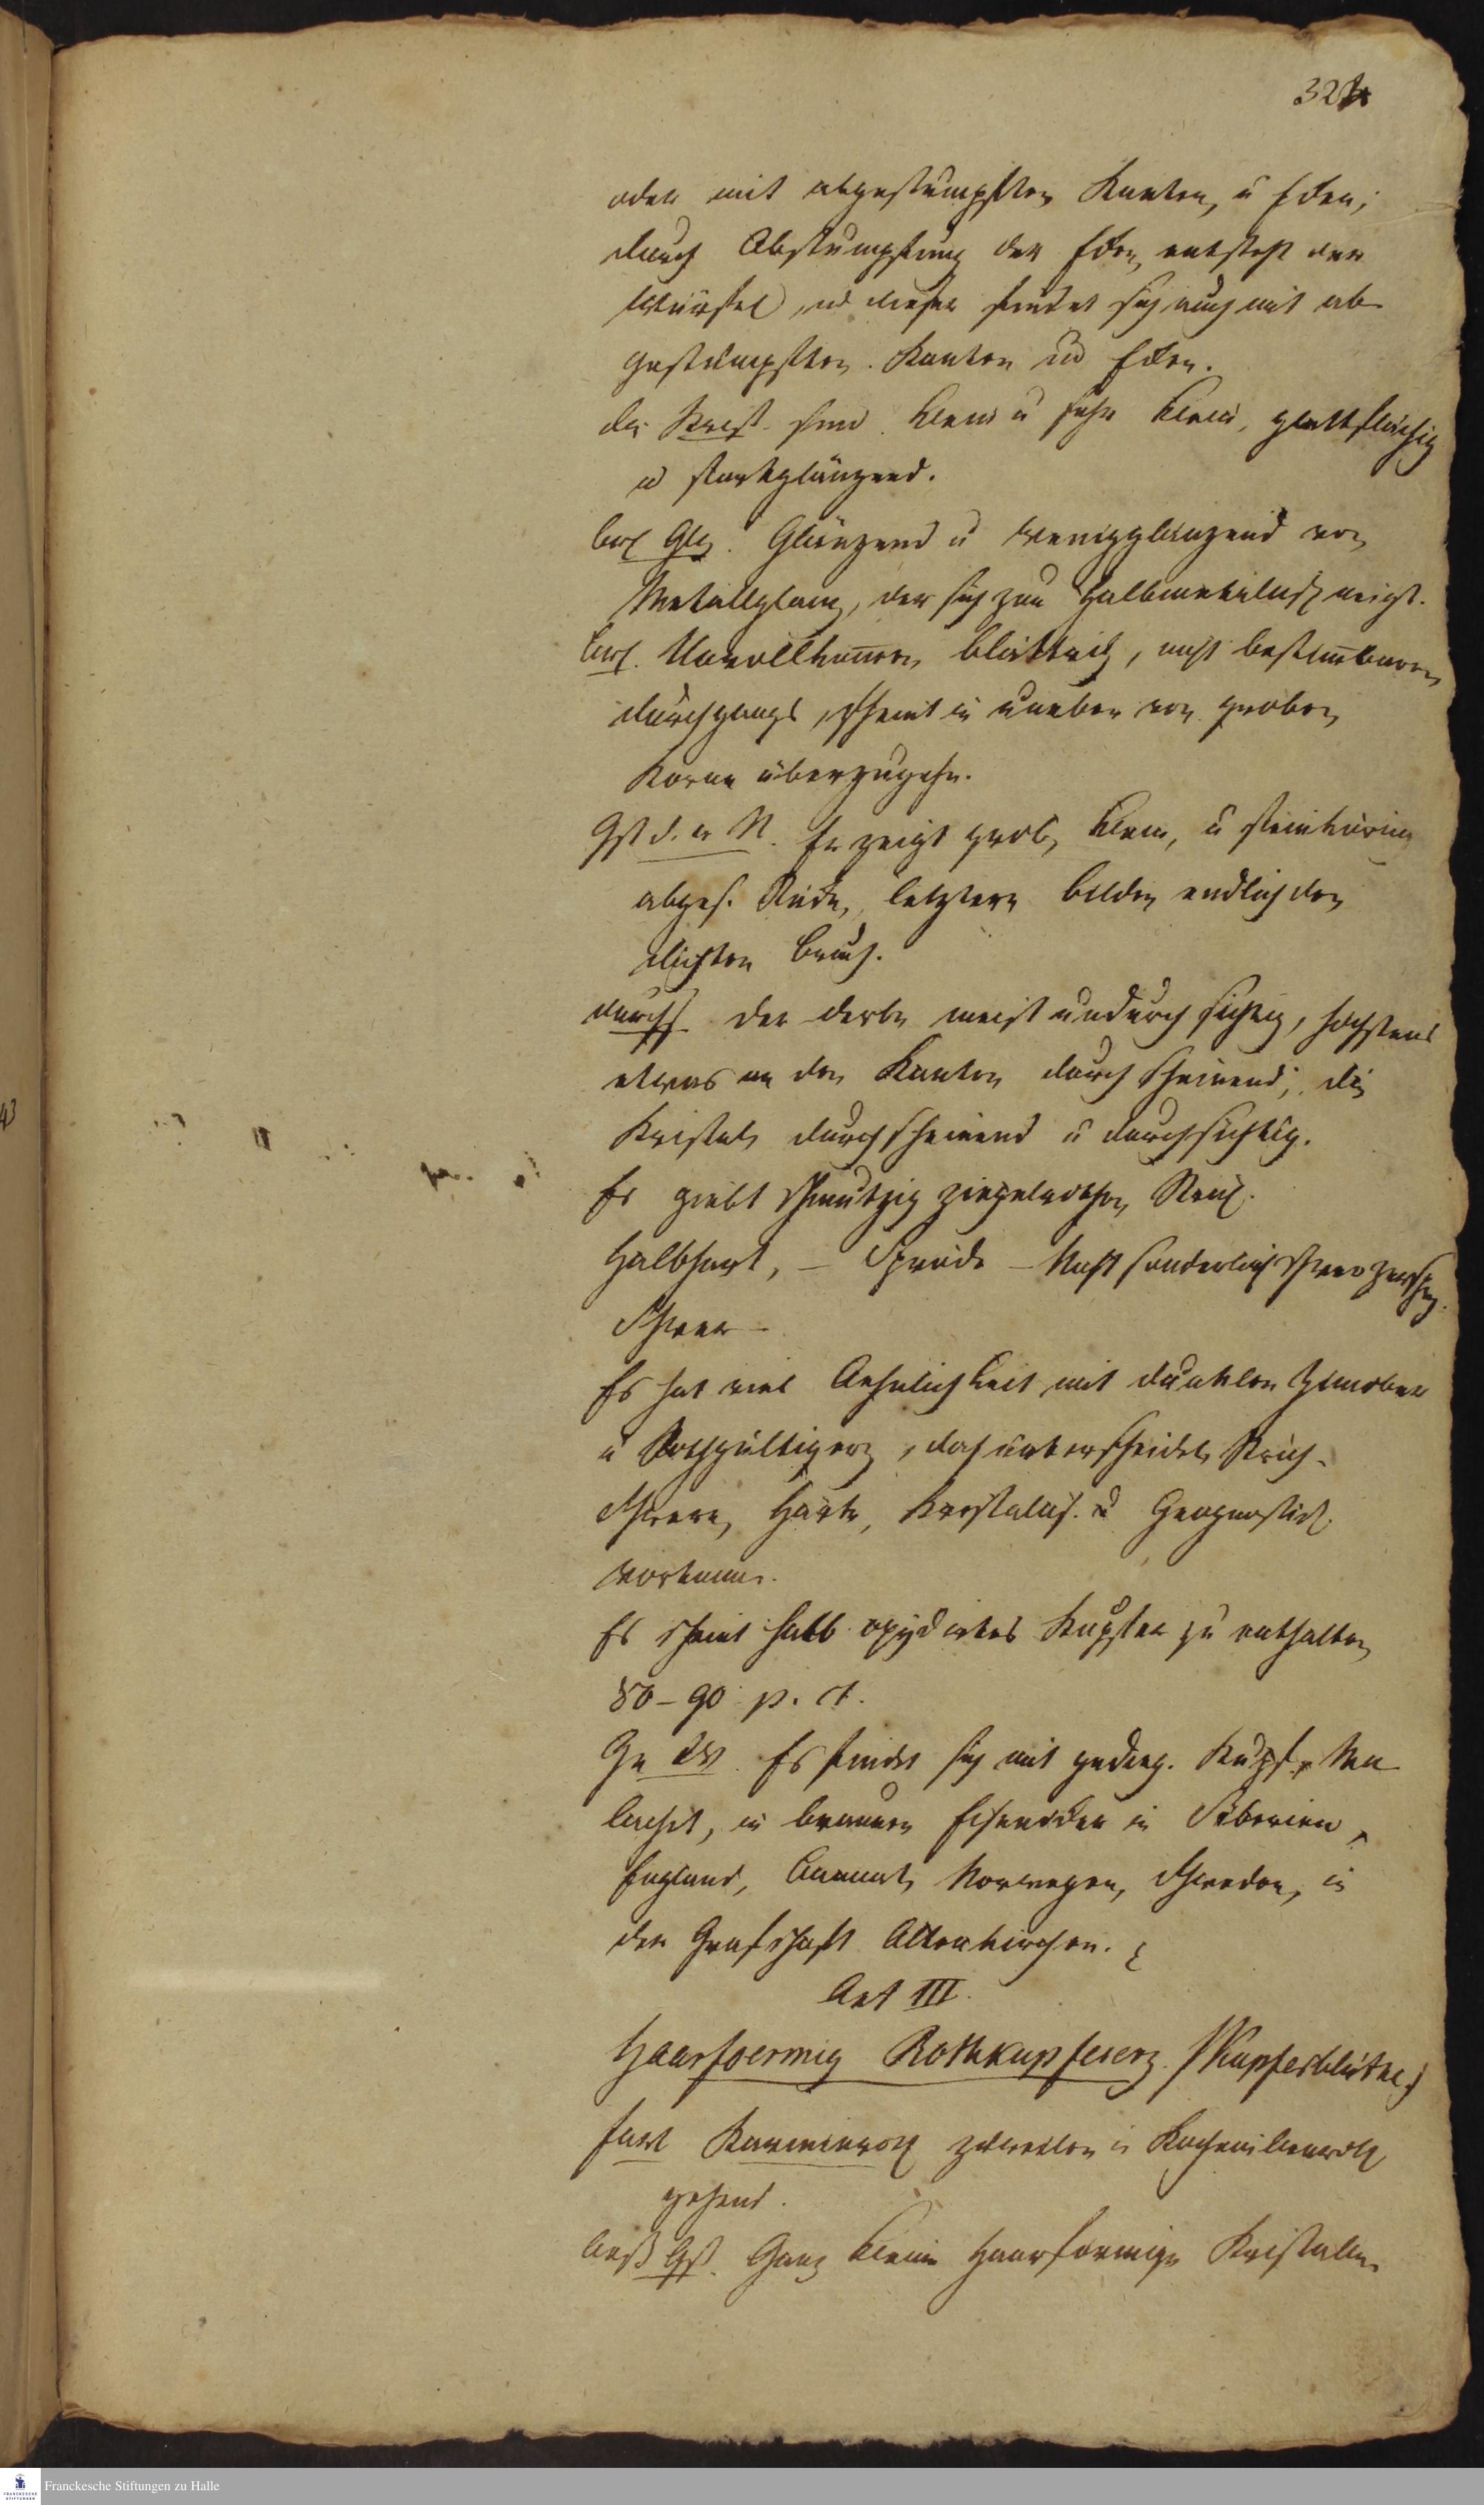 324
oder mit abgestumpften Kanten, u Ecken;
durch Abstumpfung der Ecken entsteht der
Würfel, und dieser findet sich auch mit ab
gestumpften Kanten und Ecken.
die Krist. sind klein u sehr klein, glattflächig
u starkglänzend.
Glz. Glänzend u wenigglänzend von
Metallglanz, der sich zum halbmetalisch neigt.
Unvollkom̅en blättrich, nicht bestim̅baren
durchgangs, scheint in uneben von groben
Korne überzugehn.
Gst d. u N. Er zeigt grob, klein, u feinkörnig
abges. Stücke, letztere bilden endlich den
dichten Bruch.
durchs. Der derbe meist undurchsichtig, höchstens
etwas an den Kanten durchscheinend, die
Kristale durchscheinend u durchsichtig.
Er giebt schmutzig ziegelrothen Strich.
Halbhart, – Spröde – Nicht sonderlich schwer zerspg.
Schwer –
Es hat viel Aehnlichkeit mit dunklen Zinnober
u Rothgültigerz, doch unterscheidet Strich
Schwere, Härte, Krystalis. u Geognostisch.
Vorkomm.
Es scheint halb oxydirtes Kupfer zu enthalten
80–90 p. Ct.
Ge Es findet sich mit gedieg. Kupf, Ma
lachit, u braunen Eisenocker in Siberien,
England, Bannat, Norwegen, Schweden, in
der Grafschaft Altenkirchen.
Art III.
Haarfoermig Rothkupfererz. (Kupferblüthe.)
Farb Karminroth zuweilen in Kochenillenroth
gehend.
Gst. Ganz kleine haarfoermige Kristalle.
43
Franckesche Stiftungen zu Halle
FRANCKESCHE STIFTUNGEN